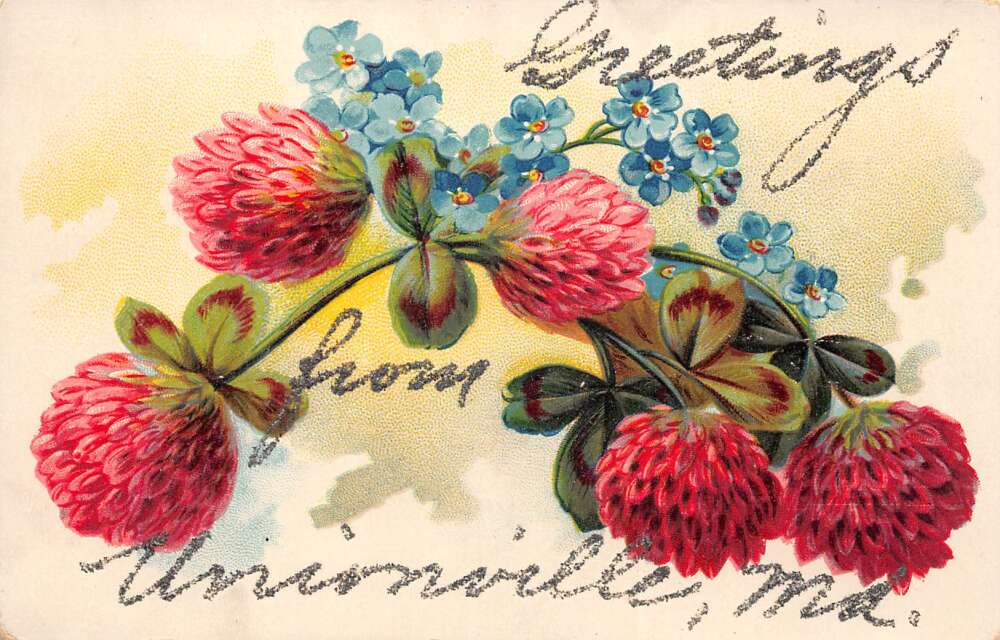 Greetings
from
Unionville, Md.